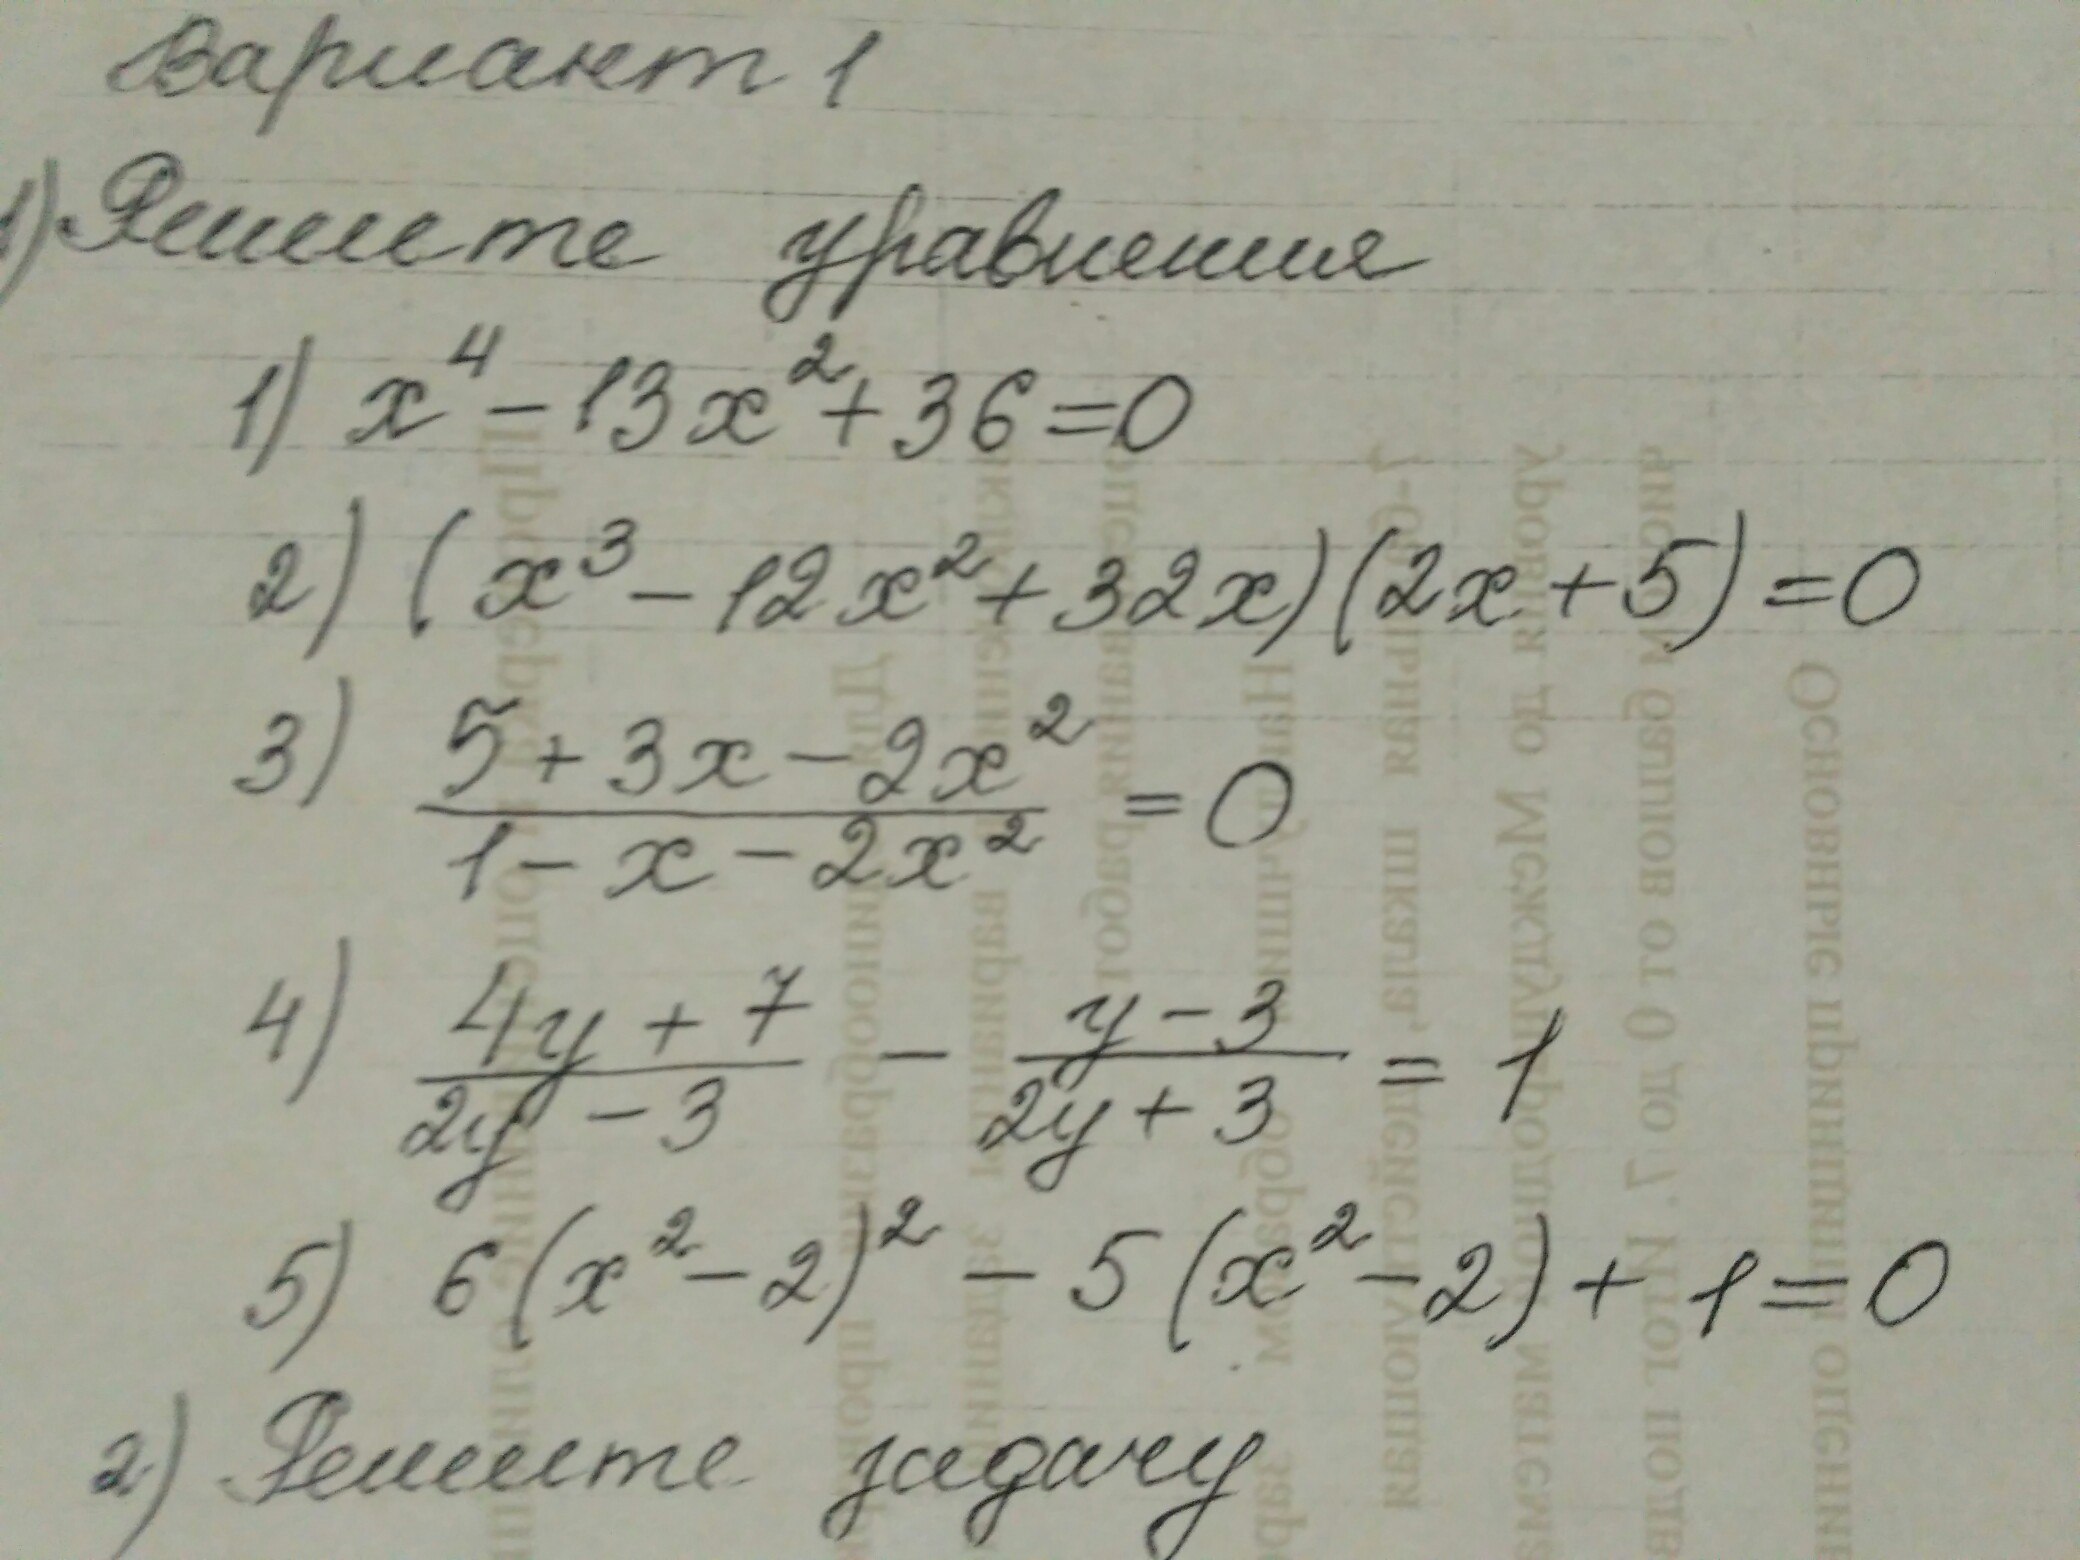 Вариант 1
1) Решите уравнения
1) x⁴ - 13x² + 36 = 0
2) (x³ - 12x² + 32x)(2x + 5) = 0
3) (5 + 3x - 2x²)/(1 - x - 2x²) = 0
4) (4y + 7)/(2y - 3) - (y - 3)/(2y + 3) = 1
5) 6(x² - 2)² - 5(x² - 2) + 1 = 0
2) Решите задачу